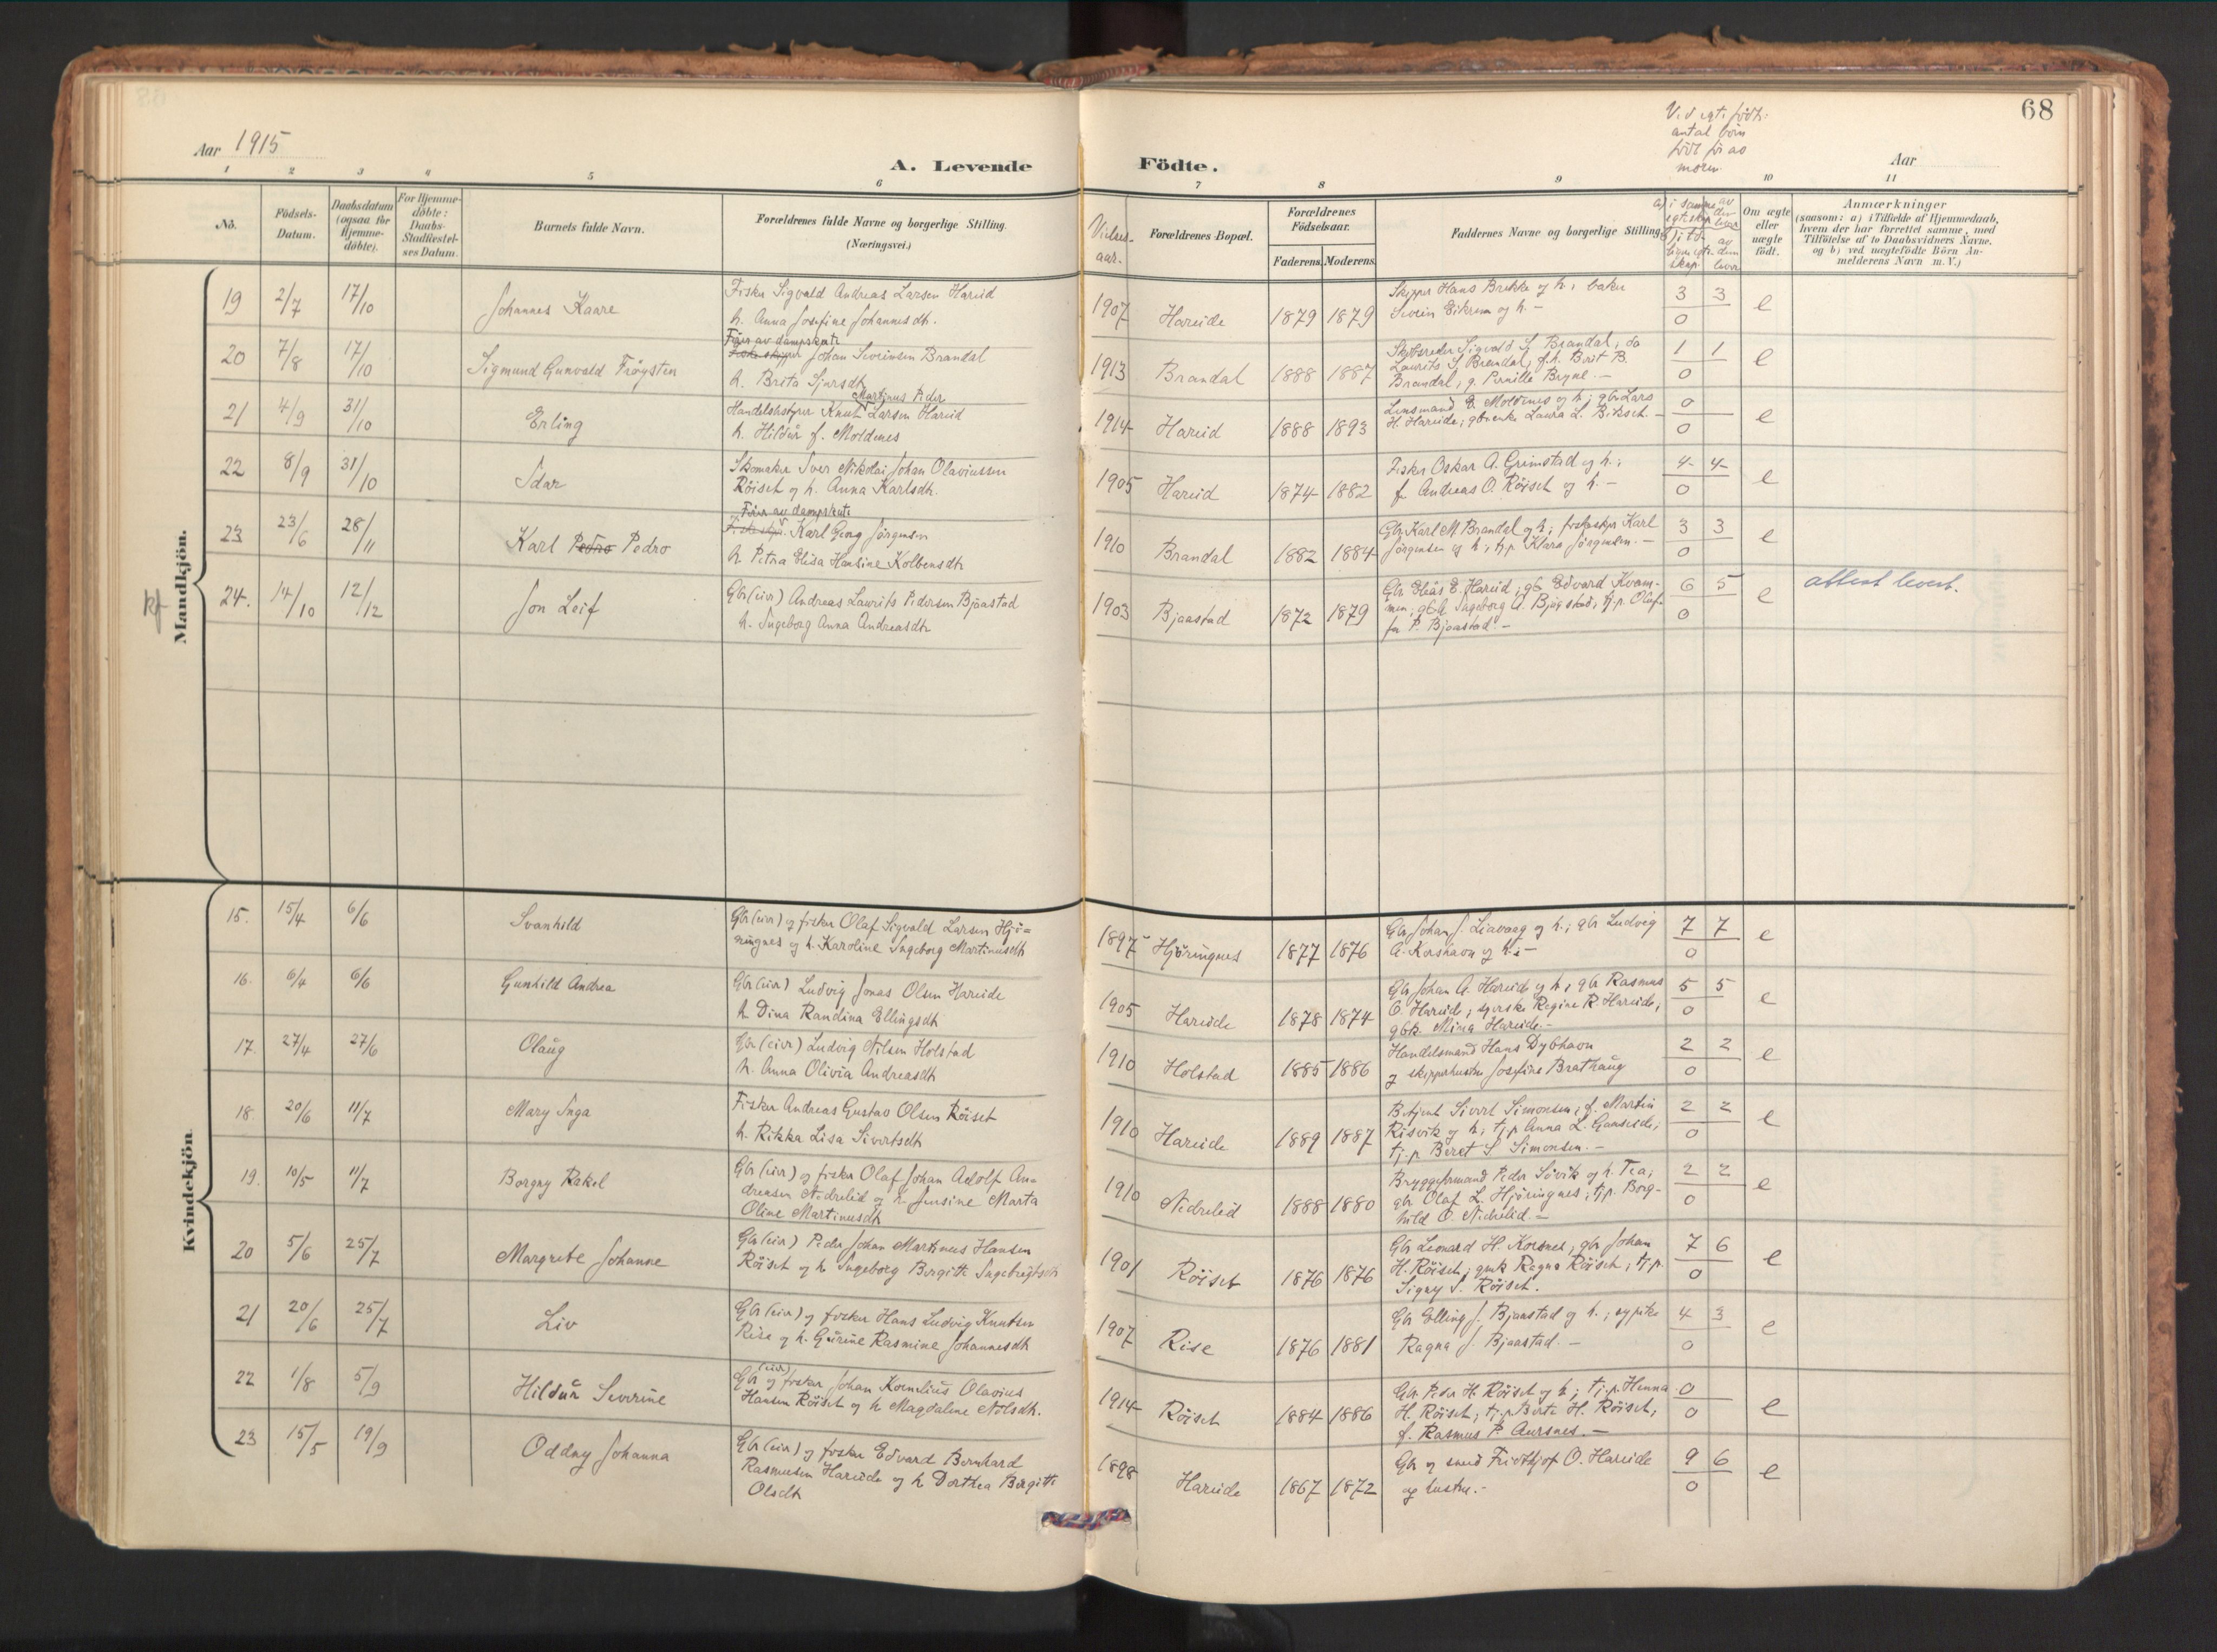 68
Aar 1915
A. Levende
Födte.
Aar
Ved egt. födte:
antal börn
född för av
moren.
1 2 3 4 5 6 7 8 9 10 11
No.
Födsels-
Datum.
Daabsdatum
(ogsaa for
Hjemme-
döbte).
For Hjemme-
döbte:
Daabs-
Stadfæstel-
ses Datum.
Barnets fulde Navn.
Forældrenes fulde Navne og borgerlige Stilling.
(Næringsvei.)
Vielses-
aar.
Forældrenes Bopæl.
Forældrenes
Födselsaar.
Faderens. Moderens.
Faddernes Navne og borgerlige Stilling.
Om ægte
eller
uægte
födt.
Anmærkninger
(saasom: a) i Tilfælde af Hjemmedaab,
hvem der har forrettet samme, med
Tilföielse af to Daabsvidners Navne.
og b) ved uægtefödte Börn An-
melderens Navn m. V.)
Mandkjön.
19 2/7 17/10 Johannes Kaare
Fisker Sigvald Andreas Larsen Hareid
h. Anna Josefine Johannesdh.
1907 Hareide 1879 1879
Skipper Hans Brekke og h.; baker
Severin Eikrem og h. -
3 3
0
e
20 7/8 17/10 Sigmund Gunvald Fröysten
Förer av dampskute
Fiskeskipper Johan Severinsen Brandal
h. Brita Sjursdh
1913 Brandal 1888 1887
Skibsreder Sigvald S. Brandal; do
Laurits S. Brandal; f.h. Berit B.
Brandal; g. Pernille Bryne. -
1 1
0
e
21 4/9 31/10 Erling
Martinus Peder
Handelsbstyrer Knut Larsen Hareid
h. Hildur f. Moldenes
1914 Hareid 1888 1893
Lensmand E. Moldenes og h; gbr Lars
H. Hareide; gbrenke Laura L. Bikset. -
0
0
e
22 8/9 31/10 Idar
Skomaker Iver Nikolai Johan Olaviussen
Röiset og h. Anna Karlsdh.
1905 Hareid 1874 1882
Fisker Oskar A. Grimstad og h.;
f. Andreas O. Röiset og h. -
4 4
0
e
23 23/6 28/11 Karl Pedro Pedro
Förer av dampskute
Fiskeskip. Karl Georg Jörgensen
h. Petra Elisa Hansine Kolbensdh
1910 Brandal 1882 1884
Gbr Karl M Brandal og h; fiskeskpr Karl
Jörgensen og h; tj.p. Klara Jörgensen. -
3 3
0
e
24. 14/10 12/12 Jon Leif
Gbr (eier) Andreas Laurits Pedersen Bjaastad
h. Ingeborg Anna Andreasdh
1903 Bjaastad 1872 1879
Gbr Elias E. Hareid; gb. Edvard Kvam-
men; gbh Ingeborg A. Bjaastad; tj.p. Olaf-
fa P. Bjaastad. -
6 5
0
e
attest levert.
Kvindekjön.
15. 15/4 6/6 Svanhild
Gbr (eier) og fisker Olaf Sigvald Larsen Hjö=
ringnes og h. Karoline Ingeborg Martinusdh
1897 Hjöringnes 1877 1876
Gbr Johan J. Liavaag og h.; gbr Ludvig
A. Korshavn og h. -
7 7
0
e
16. 6/4 6/6 Gunhild Andrea
Gbr (eier) Ludvig Jonas Olsen Hareide
h Dina Randina Ellingsdh
1905 Hareide 1878 1874
Gbr Johan A. Hareide og h; gbr Rasmus
O. Hareide; syerske Regine R. Hareide;
gbk. Mina Hareide. -
5 5
0
e
17. 27/4 27/6 Olaug
Gbr (eier) Ludvig Nilsen Holstad
h. Anna Olivia Andreasdh
1910 Holstad 1885 1886
Handelsmand Hans Dybhavn
g skipperhustru Josefine Brathaug
2 2
0
e
18. 20/6 11/7 Mary Inga
Fisker Andreas Gustav Olsen Röiset
h. Rikka Lisa Sivertsdh
1910 Hareide 1889 1887
Betjent Sivert Simonsen; f. Martin
Risvik og h; tj.p Anna L. Gamseide;
tj.p Beret S Simonsen. -
2 2
0
e
19. 10/5 11/7 Borgny Rakel
Gbr (eier) og fisker Olaf Johan Adolf An=
dreasen Nedrelid og h. Jensine Marta
Oline Martinusdh
1910 Nedrelid 1888 1880
Bryggeformand Peder Sövik og h. Tea;
gbr Olaf L. Hjöringnes; tj.p. Borg-
hild O. Nedrelid. -
2 2
0
e
20 5/6 25/7 Margrete Johanne
Gbr (eier) Peder Johan Martinus Hansen
Röiset og h Ingeborg Bergitte Ingebrigtsdh
1901 Röiset 1876 1876
Gbr Leonard H. Korsnes; gbr Johan
H. Röiset; gmk Ragna Röiset; tj.p.
Signy S. Röiset.
7 6
0
e
21 20/6 25/7 Liv
Gbr (eier) og fisker Hans Ludvig Knutsen
Rise og h. Gurine Rasmine Johannesdh
1907 Rise 1876 1881
Gbr Elling J. Bjaastad og h.; sypike
Ragna J. Bjaastad. -
4 3
0
e
22 1/8 5/9 Hildur Severine
(eier)
Gbr og fisker Johan Kornelius Olavius
Hansen Röiset og h Magdalene Nilsdh.
1914 Röiset 1884 1886
Gbr. Peder H. Röiset og h; tj.p. Henna
H. Röiset; tj.p Berte H. Röiset;
f. Rasmus P. Aursnes. -
0
0
e
23 15/5 19/9 Oddny Johanna
Gbr (eier) og fisker Edvard Bernhard
Rasmusen Hareide og h Dorthea Bergitte
Olsdh
1898 Hareide 1867 1872
Gbr og smed Fridthjof O. Hareide
og hustru. -
9 6
0
e